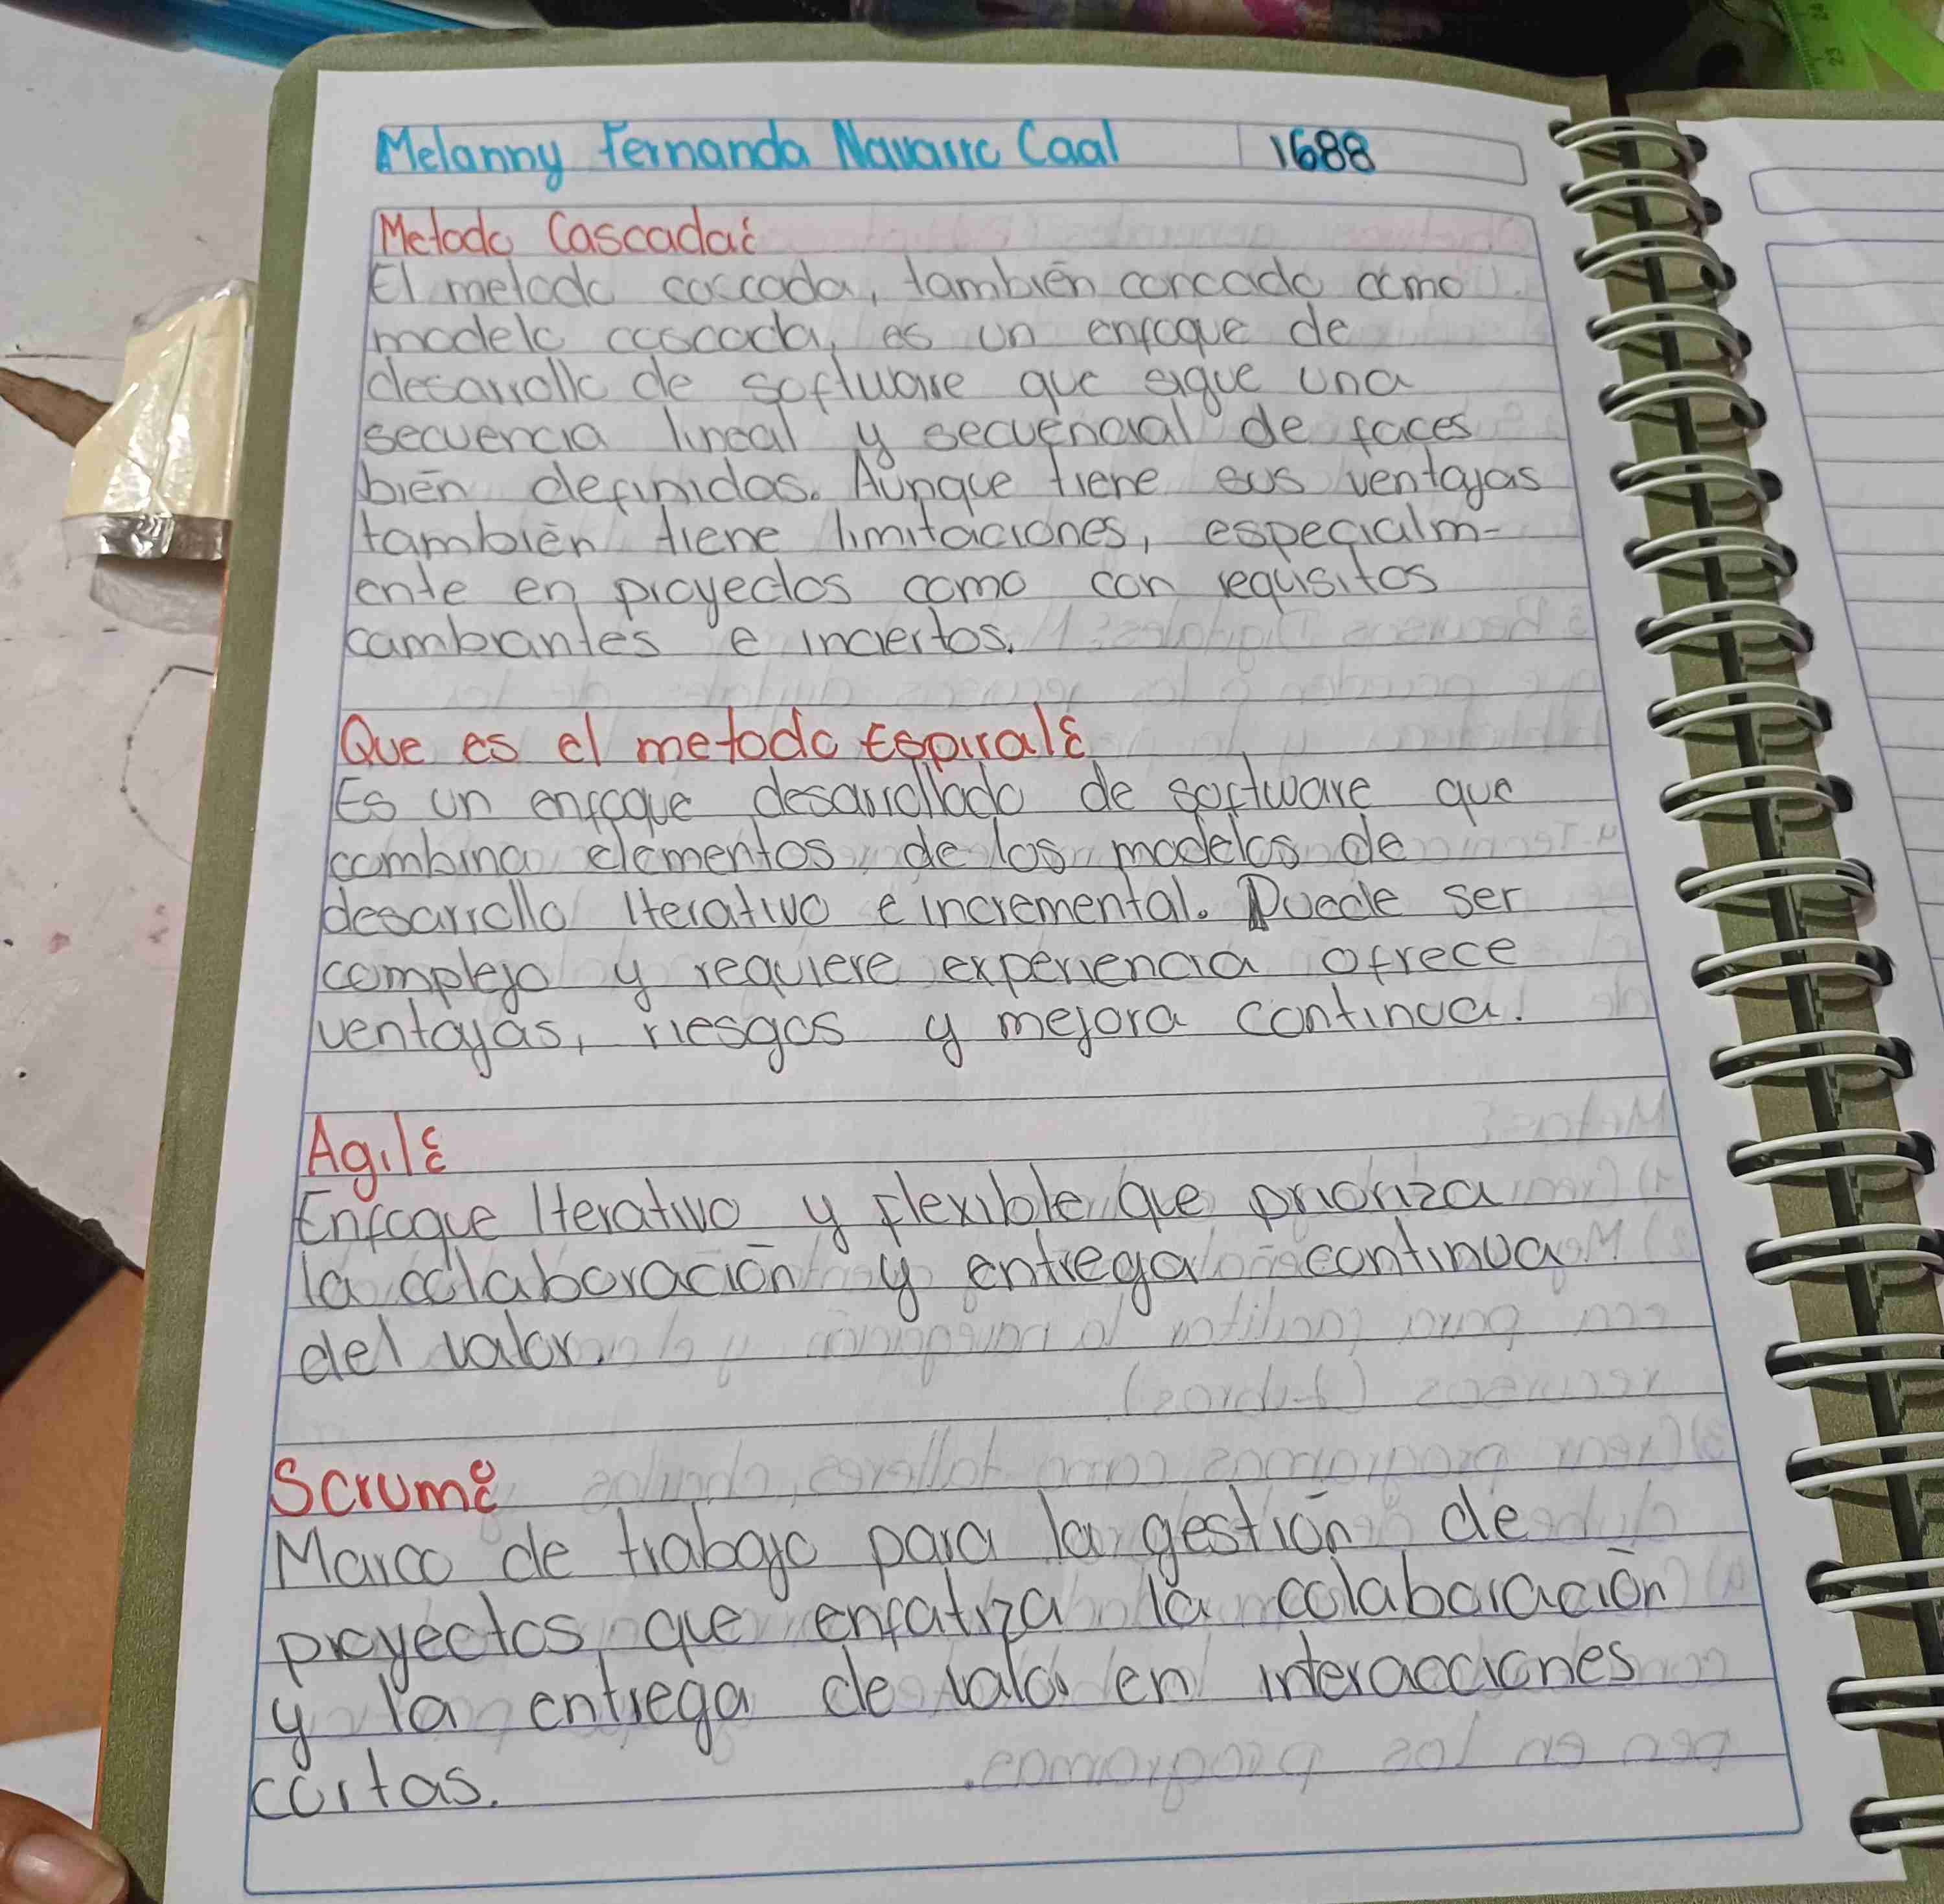 Melanny Fernanda Navarro Caal 1688
Metodo Cascada:
El metodo cascada, también concado como
modelo cascada, es un enfoque de
desarrollo de software que sigue una
secuencia lineal y secuencial de faces
bién definidas. Aunque tiene sus ventajas
también tiene limitaciones, especialm-
ente en proyectos como con requisitos
cambiantes e inciertos.
Que es el metodo Espiral:
Es un enfoque desarrollado de software que
combina elementos de los modelos de
desarrollo iterativo e incremental. Puede ser
complejo y requiere experiencia ofrece
ventajas, riesgos y mejora continua.
Agil:
Enfoque Iterativo y flexible que prioriza
la colaboración y entrega continua
del valor.
Scrum:
Marco de trabajo para la gestión de
proyectos que enfatiza la colaboración
y la entrega de valor en interacciones
cortas.